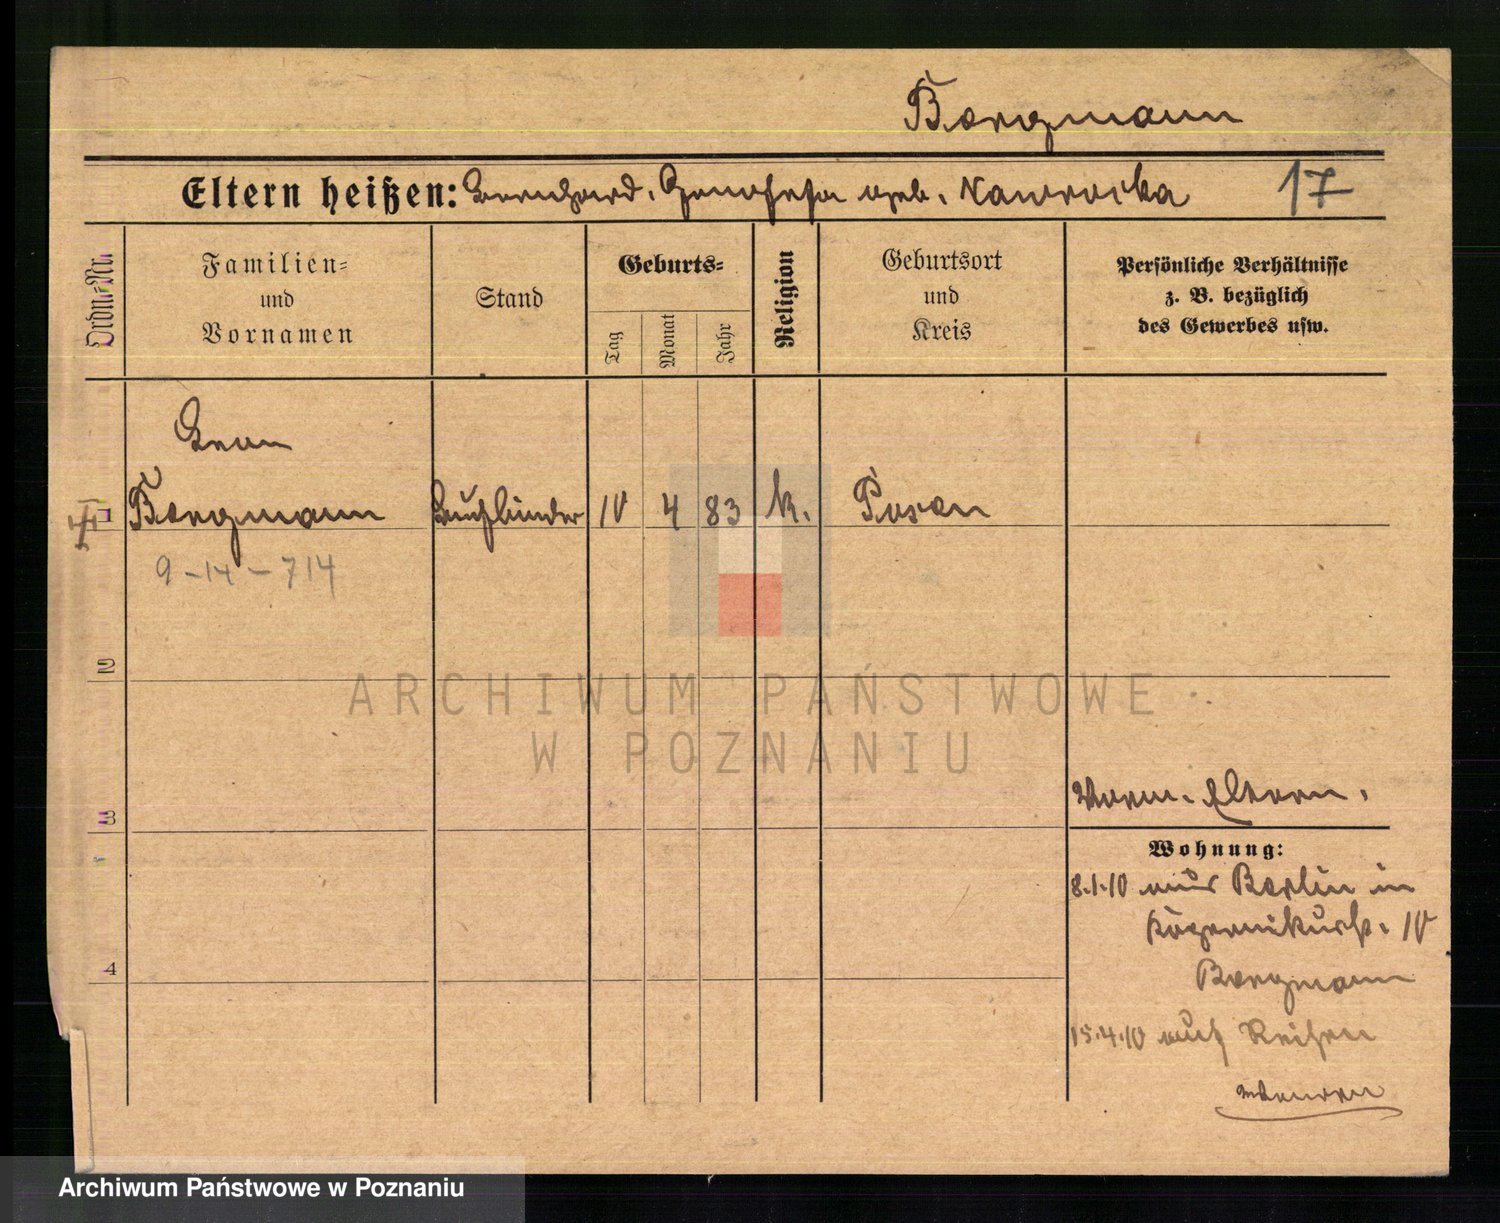 Bergmann
Eltern heißen: Bernhard, Genofefa geb. Nawrocka 17
Ordn.-Nr.
Familien-
und
Vornamen
Stand
Geburts-
Tag
Monat
Jahr
Religion
Geburtsort
und
Kreis
Persönliche Verhältnisse
z. B. bezüglich
des Gewerbes usw.
Leon
1 Bergmann Buchbinder 10 4 83 k. Posen
9-14-714
2
ARCHIWUM PAŃSTWOWE
W POZNANIU
Eltern.
3
Wohnung:
8.1.10 aus Berlin in
10
4
Bergmann
15.4.10 auf Reisen
Archiwum Państwowe w Poznaniu